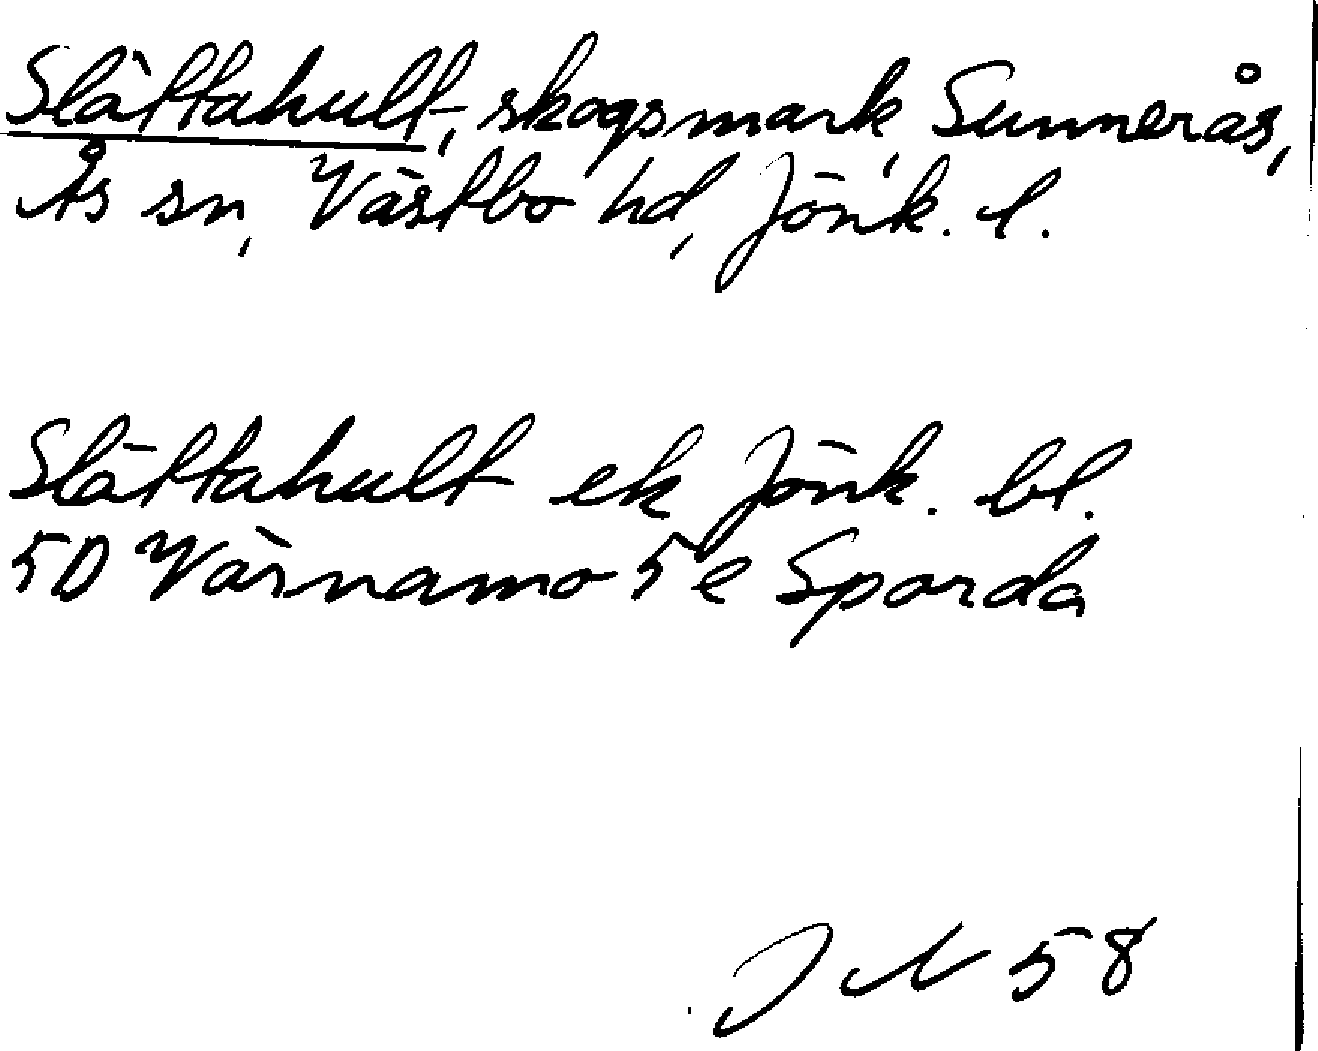 Slättahult, skogsmark, Sunnerås,
Ås sn, Västbo hd, Jönk. l.
Slättahult ek Jönk. bl.
5D Värnamo 5 e Sporda
JN 58